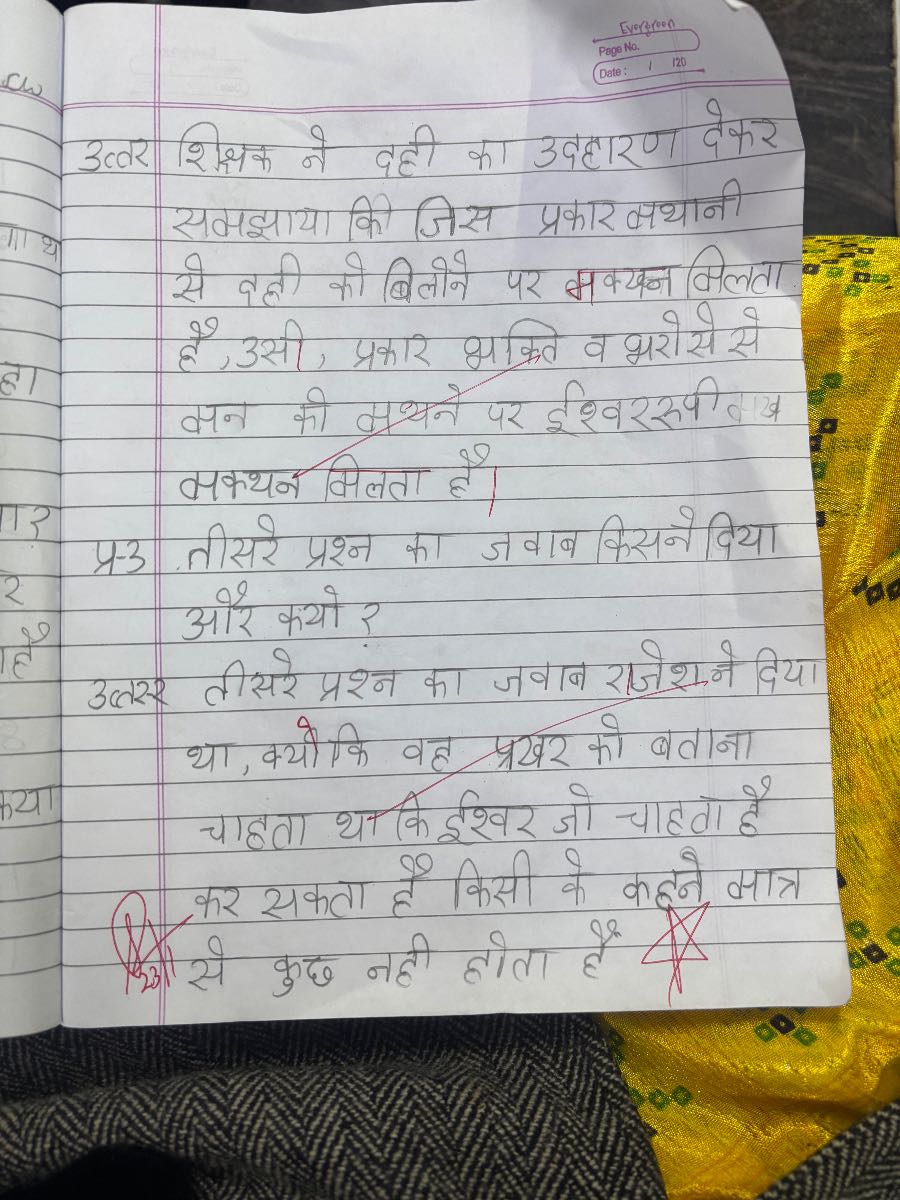 Evergreen
Page No.
Date : / /20
उत्तर शिक्षक ने दही का उदहारण देकर
समझाया कि जिस प्रकार मथानी
से दही को बिलौने पर मक्यन मिलता
है, उसी, प्रकार भक्ति व भरोसे से
मन को मथने पर ईश्वररुपी मख
मकथन मिलता है।
प्र-3 तीसरे प्रश्न का जवाब किसने दिया
और कयो ?
उत्तर तीसरे प्रश्न का जवाब राजेश ने दिया
था, क्योकि वह प्रखर को बताना
चाहता था कि ईश्वर जो चाहता है
कर सकता है किसी के कहने मात्र
से कुछ नही होता है